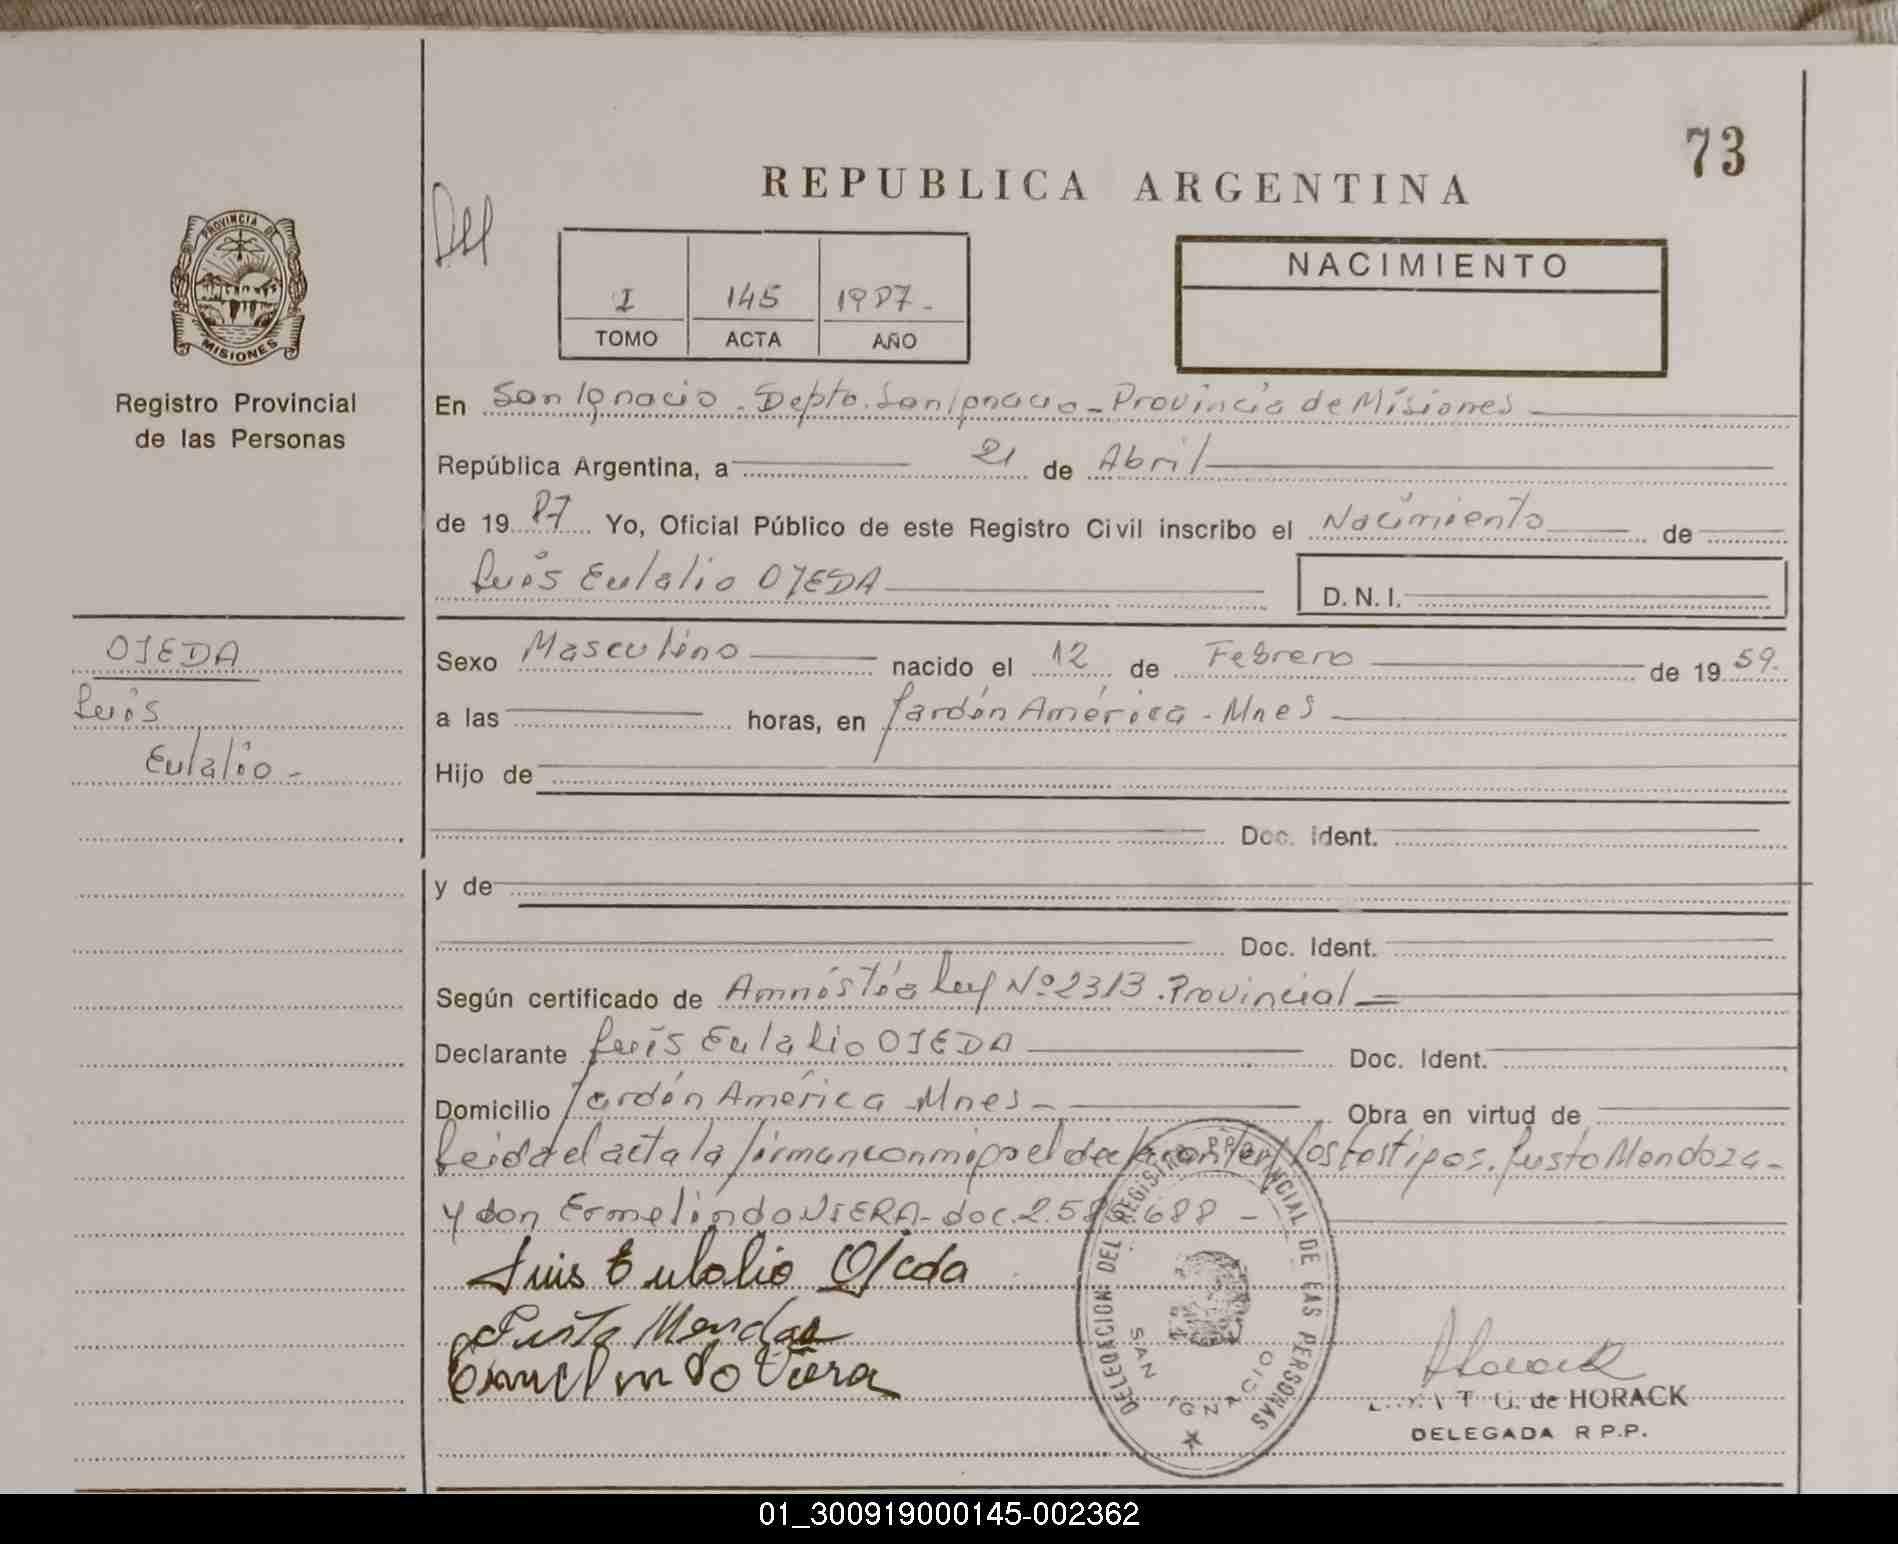 73
REPUBLICA ARGENTINA
PROVINCIA DE
MISIONES
Registro Provincial
de las Personas
I 145 1987-
TOMO ACTA AÑO
NACIMIENTO
En San Ignacio - Depto. San Ignacio - Provincia de Misiones
República Argentina, a 21 de Abril
de 19 87 Yo, Oficial Público de este Registro Civil inscribo el Nacimiento de
Luis Eulalio OJEDA D.N.I.
OJEDA
Luis
Eulalio -
Sexo Masculino nacido el 12 de Febrero de 19 59.
a las horas, en Jardín América - Mnes
Hijo de
Doc. Ident.
y de
Doc. Ident.
Según certificado de Amnistía Ley Nº 2313. Provincial =
Declarante Luis Eulalio OJEDA Doc. Ident.
Domicilio Jardín América - Mnes - Obra en virtud de
Leida el acta la firman conmigo el declarante y los testigos. Justo Mendoza -
y don Ermelindo VIERA - doc. 2.58 .688 -
Luis Eulalio Ojeda
Justo Mendoza
Ermelindo Viera
DELEGACION DEL REGISTRO PROVINCIAL DE LAS PERSONAS
SAN IGNACIO
Horack
de HORACK
DELEGADA R P.P.
01_300919000145-002362